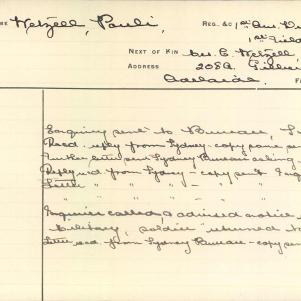 Hetzell, Pauli, REG. &C 1st Am.
1st Field
NEXT OF KIN Mrs. C. Hetzell,
ADDRESS 208A. Gilles
Adelaide.
Enquiry sent to Bureau,
Recd. reply from Sydney - copy
Further letter sent Sydney Bureau asking -
Reply recd from Sydney - copy sent
Letter " " " - "
" " " "
Enquirer called, & advised notice
military, soldier "returned to
Letter recd. from Sydney Bureau - copy